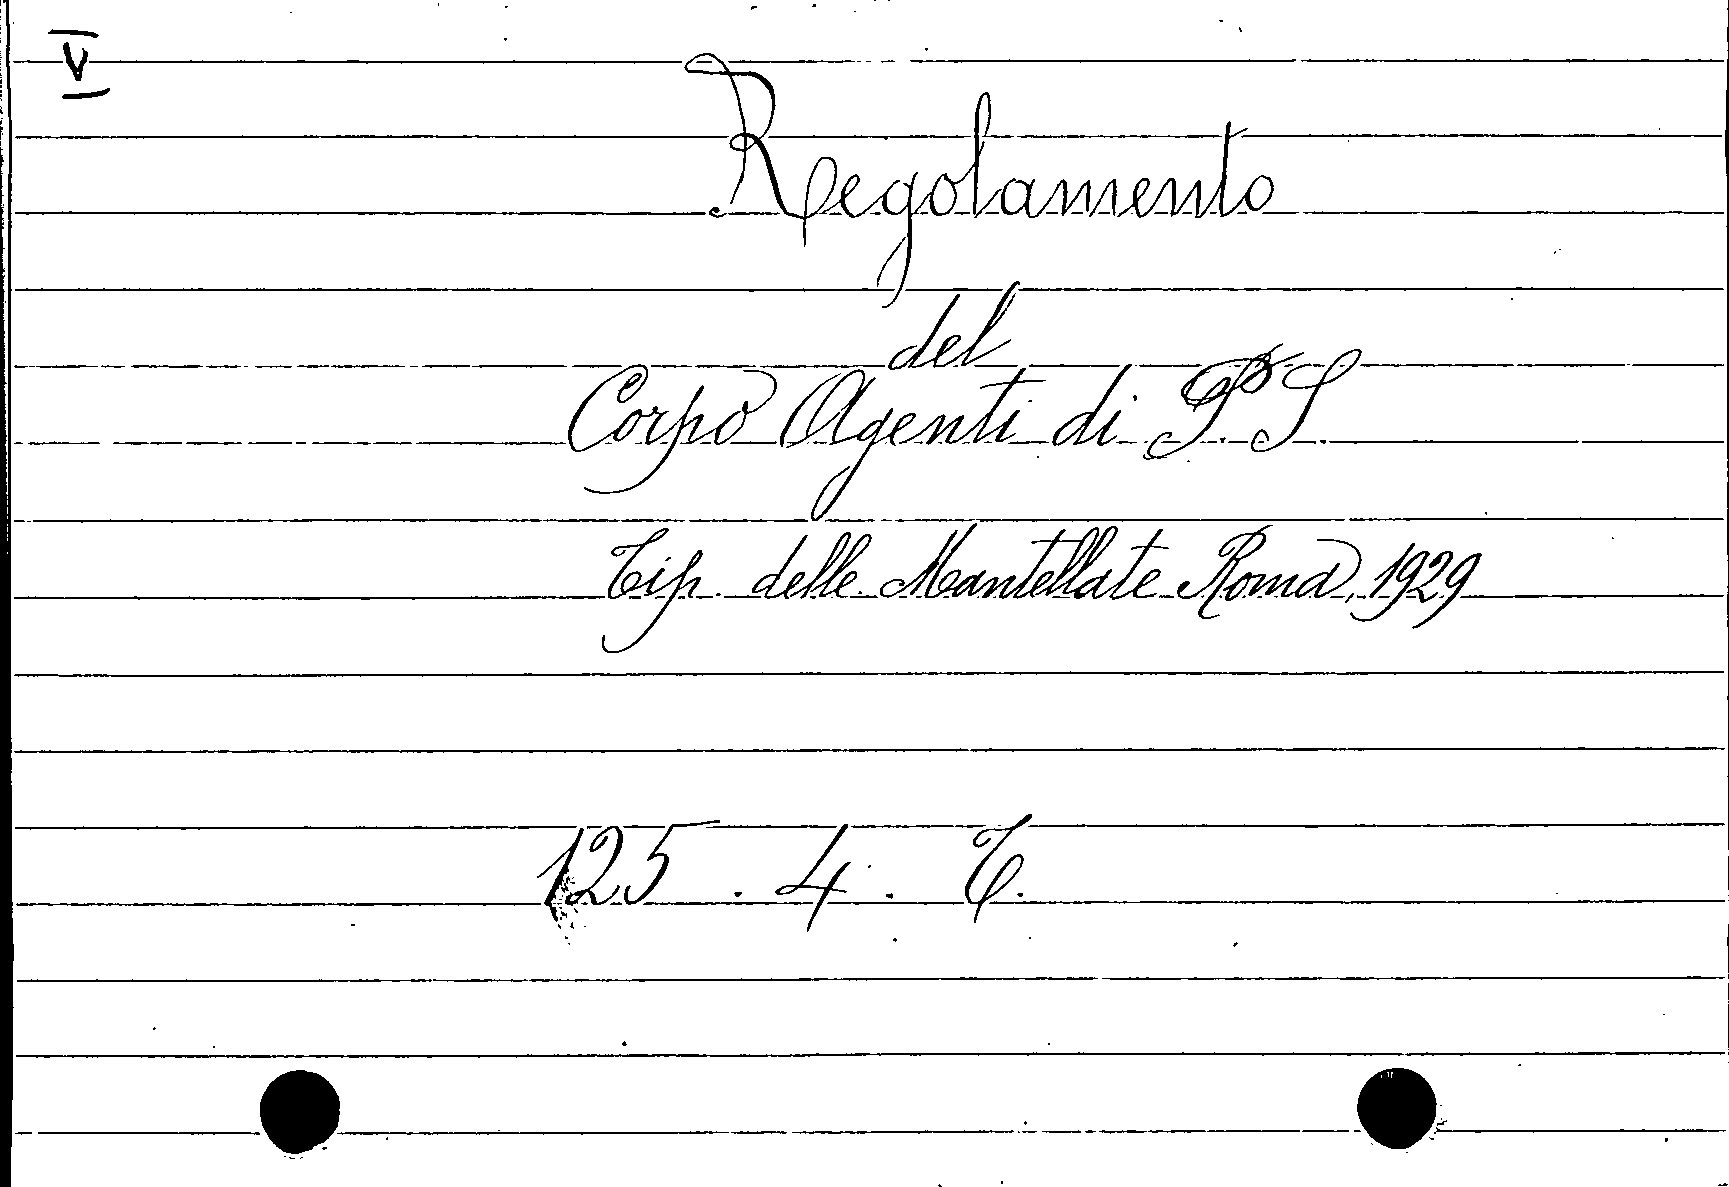 V
Regolamento
del
Corpo Agenti di P.S.
Tip. delle Mantellate Roma, 1929
125.4.T.